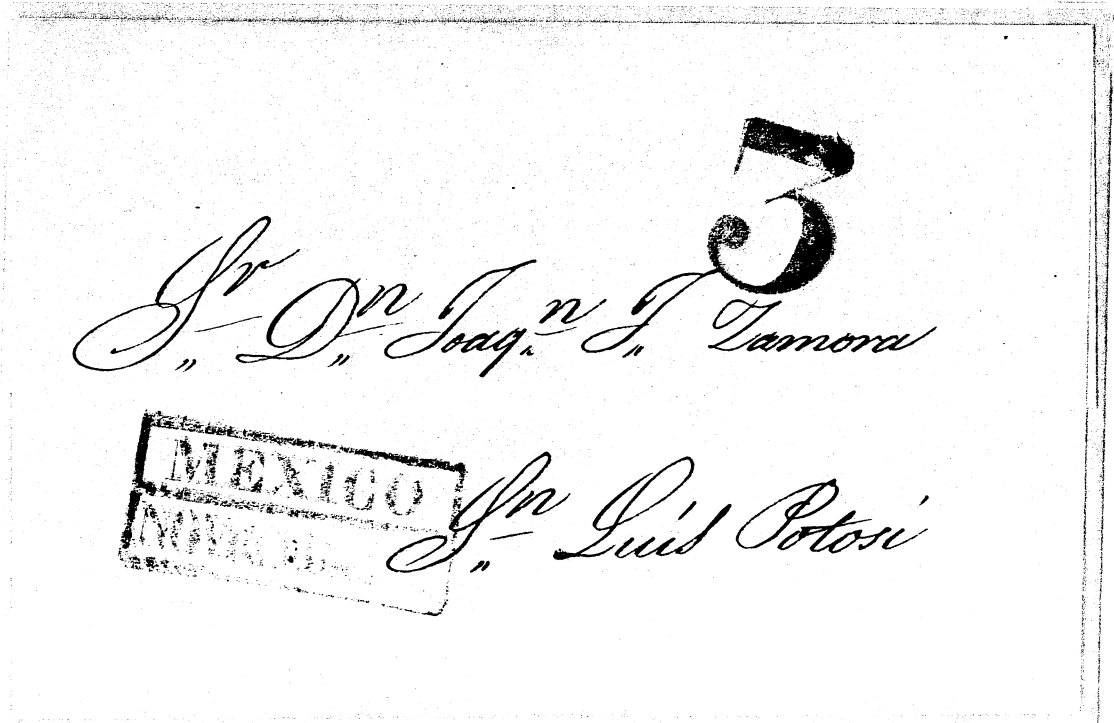 3
Sr Dn Joaqn J. Zamora
MEXICO
Sn Luis Potosi